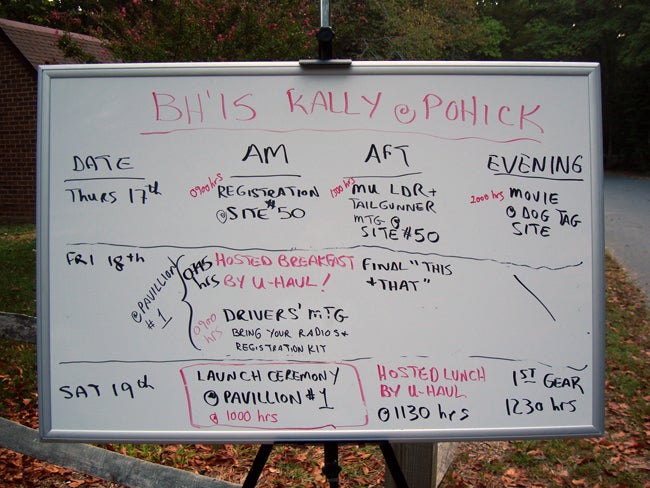 BH'15 RALLY @ POHICK
DATE AM AFT EVENING
THURS 17th
0900 hrs REGISTRATION
@ SITE #50
1500 hrs MU LDR +
TAILGUNNER
MTG @
SITE #50
2000 hrs MOVIE
@ DOG TAG
SITE
FRI 18th
@ PAVILLION
#1
0745 hrs HOSTED BREAKFAST
BY U-HAUL!
0900 hrs DRIVERS' MTG
BRING YOUR RADIOS +
REGISTRATION KIT
FINAL "THIS
+ THAT"
SAT 19th
LAUNCH CEREMONY
@ PAVILLION #1
@ 1000 hrs
HOSTED LUNCH
BY U-HAUL
@ 1130 hrs
1ST GEAR
1230 hrs